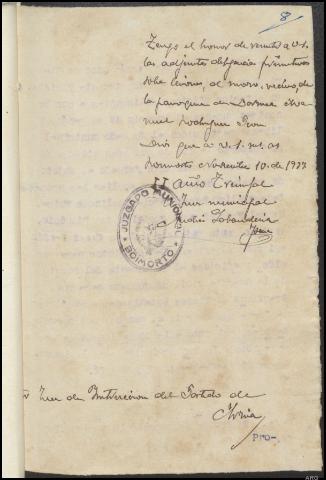 8
Tengo el honor de remitir a V.S.
las adjuntas diligencias primitivas
sobre lesiones, al mozo, vecino, de
la parroquia de Dormea Ma-
nuel Rodriguez
Dios gue a V.S. ms. as
Boimorto Noviembre 10 de 1937
II año Triunfal
Juez municipal
JUZGADO MUNICIPAL
BOIMORTO
Juez de Instrucion del Partido de
Arzúa
Pro-